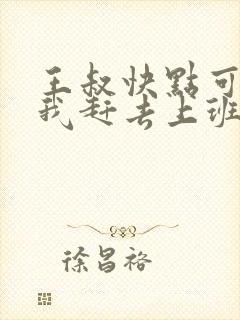 王叔快點可
我赶去上班
徐昌裕